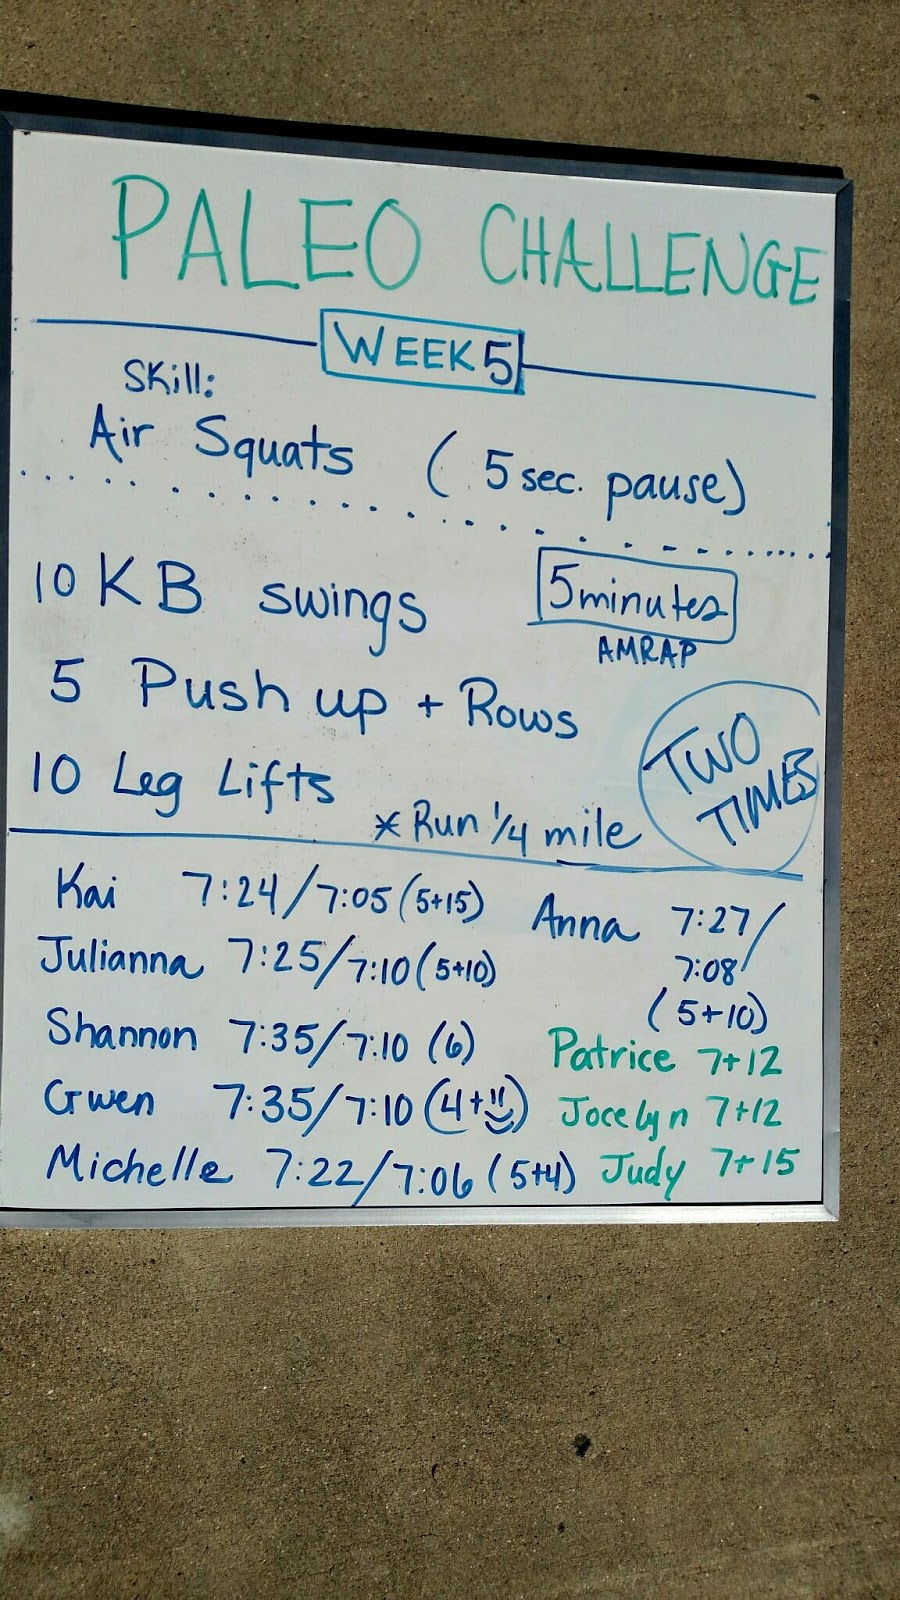 PALEO CHALLENGE
WEEK 5
Skill:
Air Squats (5 sec. pause)
10 KB swings
5 minutes
AMRAP
5 Push up + Rows
10 Leg Lifts
TWO
TIMES
* Run 1/4 mile
Kai 7:24/7:05 (5+15)
Julianna 7:25/7:10 (5+10)
Shannon 7:35/7:10 (6)
Gwen 7:35/7:10 (4+!!)
Michelle 7:22/7:06 (5+4)
Anna 7:27/
7:08
(5+10)
Patrice 7+12
Jocelyn 7+12
Judy 7+15